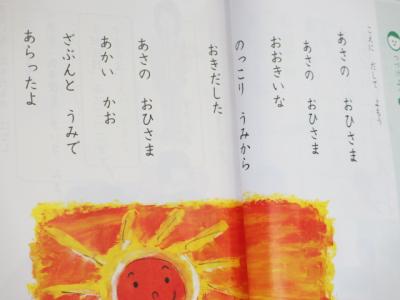 こえに だして よもう
あさの おひさま
あさの おひさま
おおきいな
のっこり うみから
おきだした
あさの おひさま
あかい かお
ざぶんと うみで
あらったよ